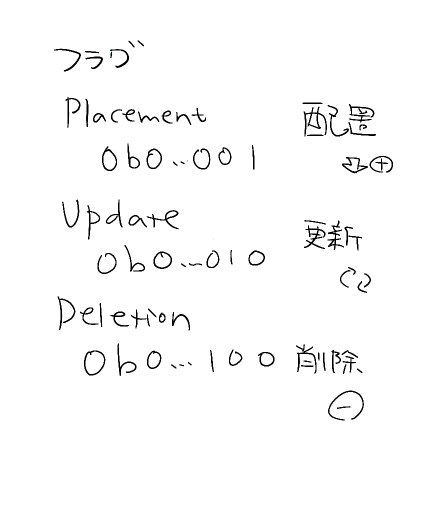 フラグ
Placement 配置
0b0...001
Update 更新
0b0...010
Deletion
0b0...100 削除